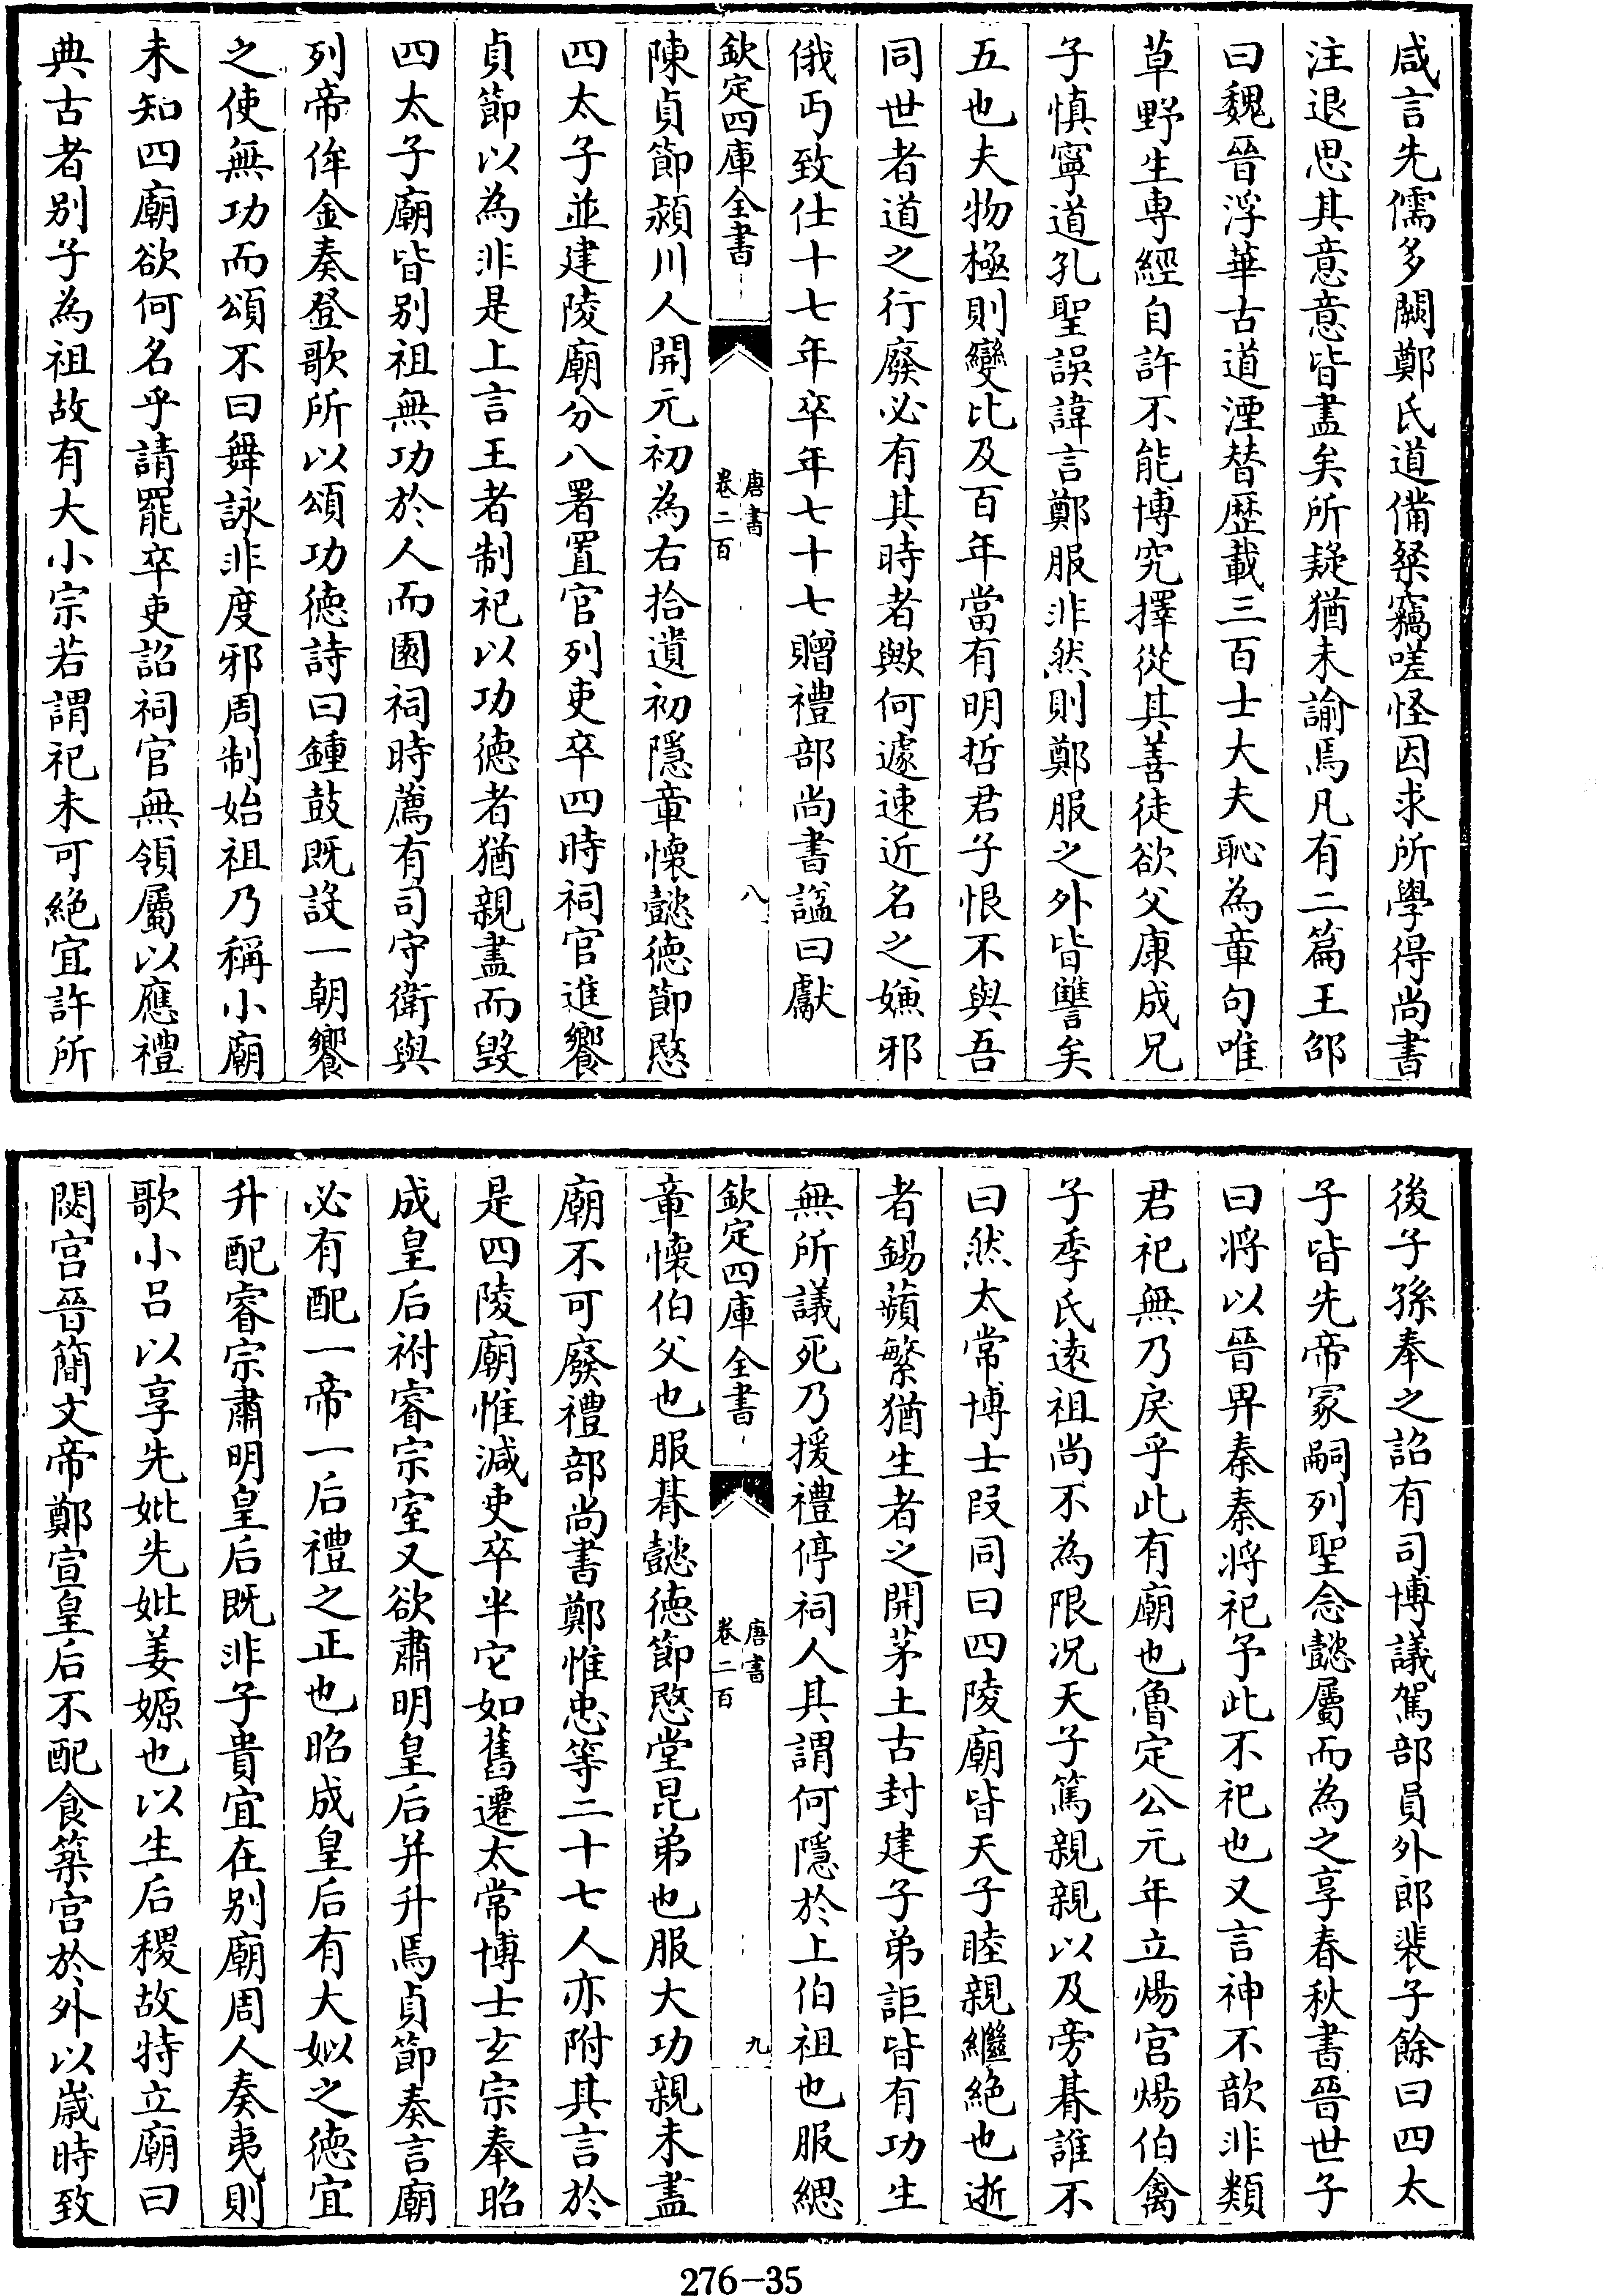 咸言先儒多闕鄭氏道備粲竊嗟怪因求所學得尚書
注退思其意意皆盡矣所疑猶未諭焉凡有二篇王邵
曰魏晉浮華古道湮替歴載三百士大夫恥為章句唯
草野生專經自許不能博究擇從其善徒欲父康成兄
子慎寧道孔聖誤諱言鄭服非然則鄭服之外皆讐矣
五也夫物極則變比及百年當有明哲君子恨不與吾
同世者道之行廢必有其時者歟何遽速近名之嫌邪
俄丐致仕十七年卒年七十七贈禮部尚書諡曰獻
欽定四庫全書
唐書
卷二百
八
陳貞節潁川人開元初為右拾遺初隱章懷懿德節愍
四太子並建陵廟分八署置官列吏卒四時祠官進饗
貞節以為非是上言王者制祀以功徳者猶親盡而毀
四太子廟皆别祖無功於人而園祠時薦有司守衛與
列帝侔金奏登歌所以頌功徳詩曰鍾鼓既設一朝饗
之使無功而頌不曰舞詠非度邪周制始祖乃稱小廟
未知四廟欲何名乎請罷卒吏詔祠官無領屬以應禮
典古者别子為祖故有大小宗若謂祀未可絶宜許所
後子孫奉之詔有司博議駕部員外郎裴子餘曰四太
子皆先帝冢嗣列聖念懿屬而為之享春秋書晉世子
曰將以晉畀秦秦將祀予此不祀也又言神不歆非類
君祀無乃戾乎此有廟也魯定公元年立煬宫煬伯禽
子季氏逺祖尚不為限況天子篤親親以及旁朞誰不
曰然太常博士段同曰四陵廟皆天子睦親繼絶也逝
者錫蘋蘩猶生者之開茅土古封建子弟詎皆有功生
無所議死乃援禮停祠人其謂何隱於上伯祖也服緦
欽定四庫全書
唐書
卷二百
九
章懷伯父也服朞懿徳節愍堂昆弟也服大功親未盡
廟不可廢禮部尚書鄭惟忠等二十七人亦附其言於
是四陵廟惟減吏卒半它如舊遷太常博士玄宗奉昭
成皇后祔睿宗室又欲肅明皇后并升焉貞節奏言廟
必有配一帝一后禮之正也昭成皇后有大姒之徳宜
升配睿宗肅明皇后既非子貴宜在别廟周人奏夷則
歌小吕以享先妣先妣姜嫄也以生后稷故特立廟曰
閟宫晉簡文帝鄭宣皇后不配食築宫於外以歳時致
276-35